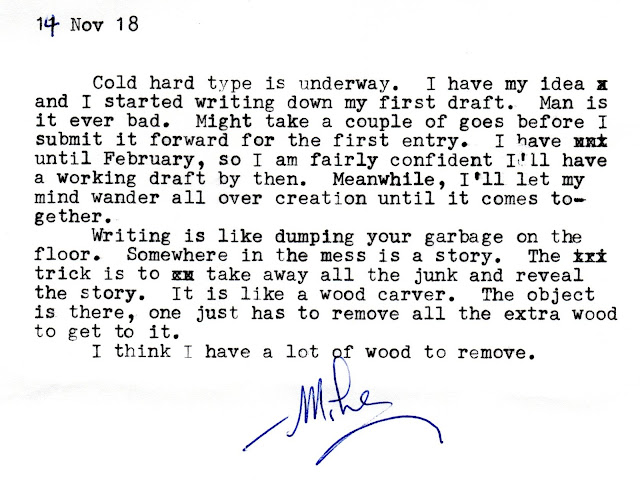 14 Nov 18
Cold hard type is underway. I have my idea x
and I started writing down my first draft. Man is
it ever bad. Might take a couple of goes before I
submit it forward for the first entry. I have
until February, so I am fairly confident I'll have
a working draft by then. Meanwhile, I'll let my
mind wander all over creation until it comes to-
gether.
Writing is like dumping your garbage on the
floor. Somewhere in the mess is a story. The
trick is to take away all the junk and reveal
the story. It is like a wood carver. The object
is there, one just has to remove all the extra wood
to get to it.
I think I have a lot of wood to remove.
Mike